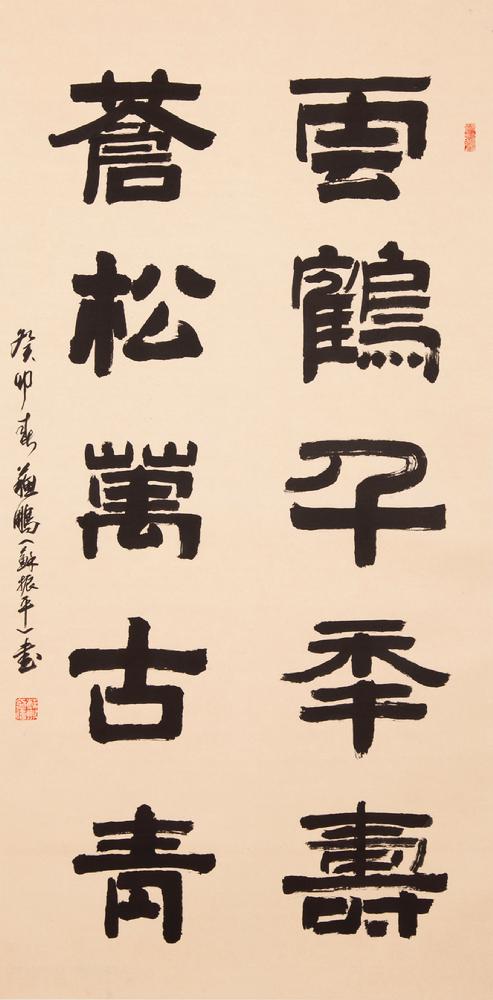 雲鶴千秊壽
蒼松萬古青
癸卯春蘓鵬（蘇振平）書